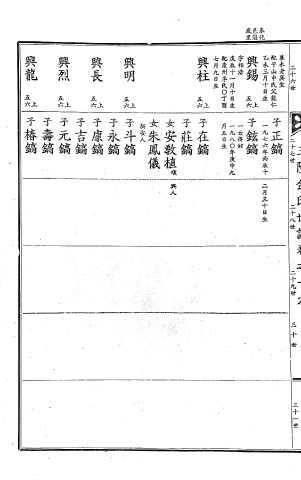 二十六世
二十七世
二十八世
二十九世
三十世
三十一世
興錫 五上六
子正鎬
一九七六年丙辰十
二月三十日生
子鉉鎬
一九八〇年庚申九
月五日生
字相浩
戊辰十一月十日生
七月九日生
興柱 五上六
子在鎬
子莊鎬
女安教植 順興人
女朱鳳儀 新安人
興明 五上六
子斗鎬
子永鎬
興長 五上六
子康鎬
子吉鎬
興烈 五上六
子元鎬
子壽鎬
興龍 五上六
子椿鎬